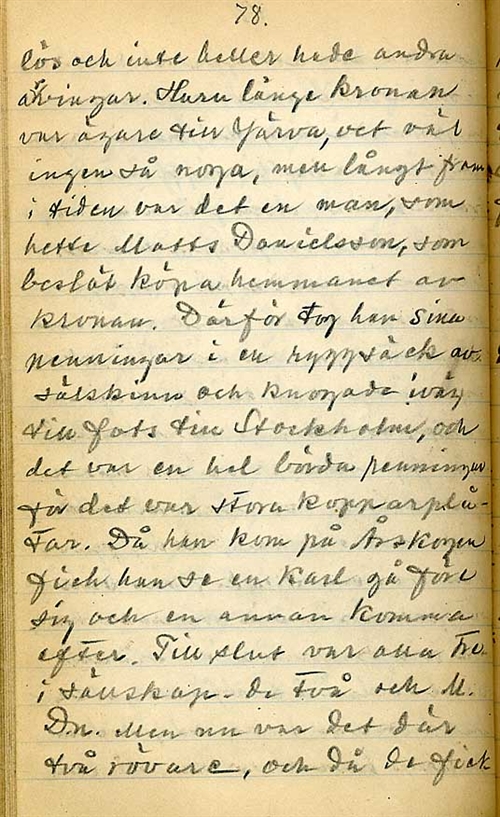 78.
lös och inte heller hade andra
arvingar. Huru länge kronan
var ägare till Järva, vet väl
ingen så noga, men långt fram
i tiden var det en man, som
hette Matts Danielsson, som
beslöt köpa hemmanet av
kronan. Därför tog han sina
penningar i en ryggsäck av
sälskinn och knogade iväg
till fots till Stockholm, och
det var en hel börda penningar
för det var stora kopparplå-
tar. Då han kom på Årskogen
fick han se en karl gå före
sig och en annan komma
efter. Till slut var alla tre
i sällskap - de två och M.
Dn. Men nu var det där
två rövare, och då de fick